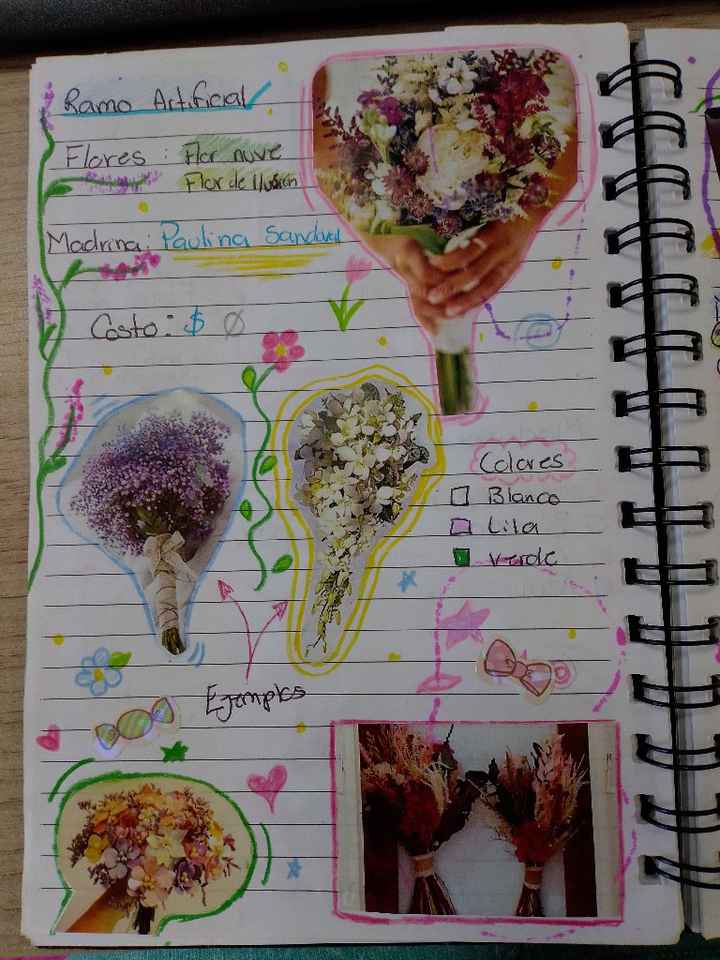 Ramo Artificial
Flores : Flor nuve
Flor de Ilusión
Madrina: Paulina Sandoval
Costo: $ 0
Colores
Blanco
Lila
verde
Ejemplos